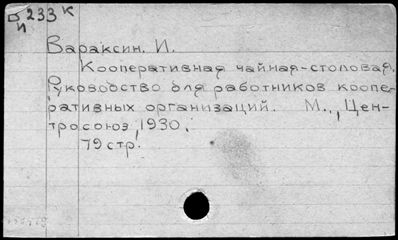 Б 233 К
И
Вараксин. И.
Кооперативная чайная-столовая.
Руководство для работников коопе-
ративных организаций. М., Цен-
тросоюз, 1930.
79 стр.